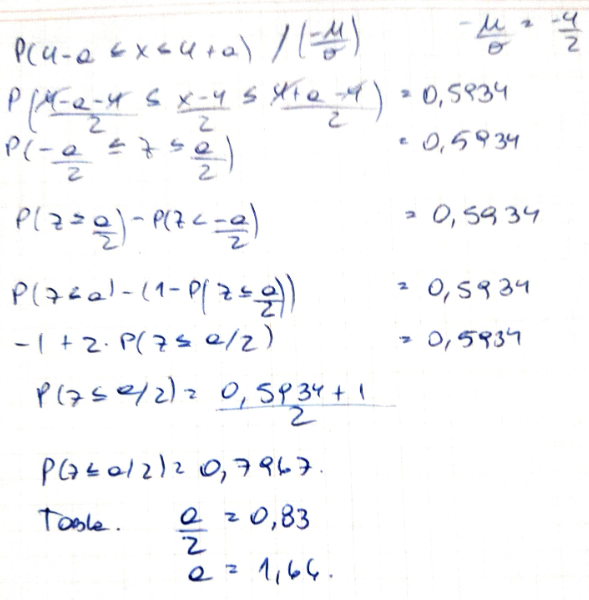 P(4-a ≤ x ≤ 4+a) / (-μ/σ) -μ/σ = -4/2
P((4-a-4)/2 ≤ (x-4)/2 ≤ (4+a-4)/2) = 0,5934
P(-a/2 ≤ z ≤ a/2) = 0,5934
P(z ≤ a/2) - P(z < -a/2) = 0,5934
P(z ≤ a) - (1-P(z ≤ a/2)) = 0,5934
-1 + 2·P(z ≤ a/2) = 0,5934
P(z ≤ a/2) = (0,5934+1)/2
P(z ≤ a/2) = 0,7967.
Tabla. a/2 = 0,83
a = 1,66.